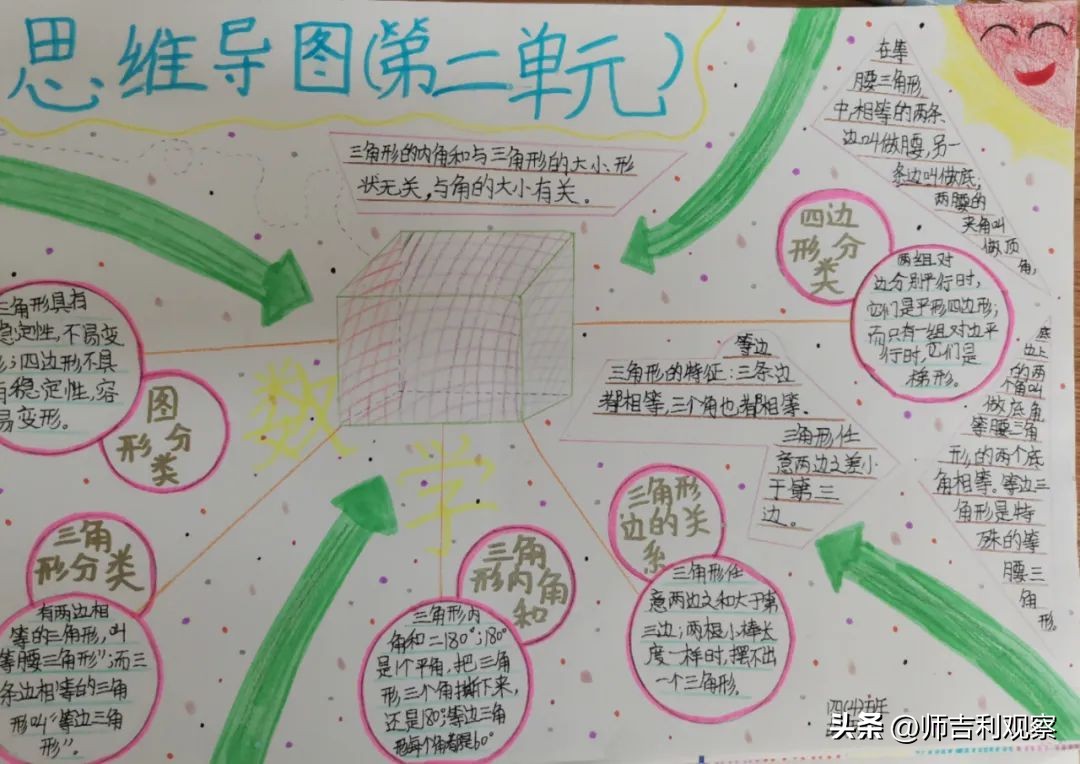 思维导图(第二单元)
三角形的内角和与三角形的大小、形
状无关,与角的大小有关。
在等
腰三角形
中,相等的两条
边叫做腰,另一
条边叫做底,
两腰的
夹角叫
做顶
角,
底
边上
的两
个角叫
做底角
等腰三角
形,的两个底
角相等。等边三
角形是特
殊的等
腰三
角
形。
四边
形分
类
两组对
边分别平行时,
它们是平形四边形;
而只有一组对边平
行时,它们是
梯形。
等边
三角形的特征:三条边
都相等,三个角也都相等.
三角形任
意两边之差小
于第三
边。
三角形具有
稳定性,不易变
形;四边形不具
有稳定性,容
易变形。
图
形分
类
数
学
三角
形分类
有两边相
等的三角形,叫
等腰三角形”;而三
条边相等的三角
形叫“等边三角
形”。
三角
形内角
和
三角形内
角和二180°;180°
是1个平角,把三角
形,三个角撕下来,
还是180°;等边三角
形每个角都是60°
三角形
边的关
系
三角形任
意两边之和大于第
三边;两根小棒长
度一样时,摆不出
一个三角形.
头条 @师吉利观察